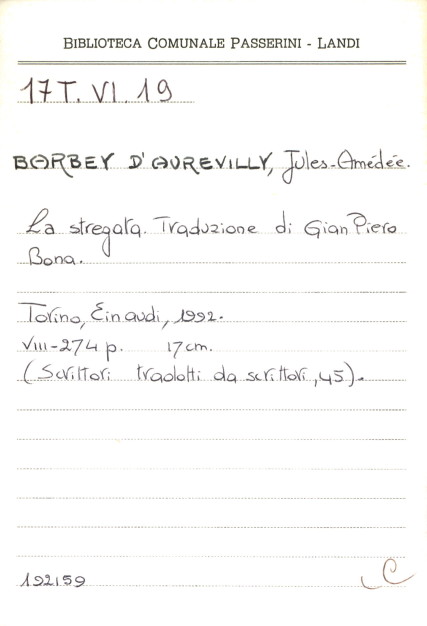 BIBLIOTECA COMUNALE PASSERINI - LANDI
17 T. VI. 19
BARBEY D'AUREVILLY, Jules-Amédée.
La stregata. Traduzione di Gian Piero
Bona.
Torino, Einaudi, 1992.
VIII-274 p. 17 cm.
(Scrittori tradotti da scrittori, 45).
192159
C